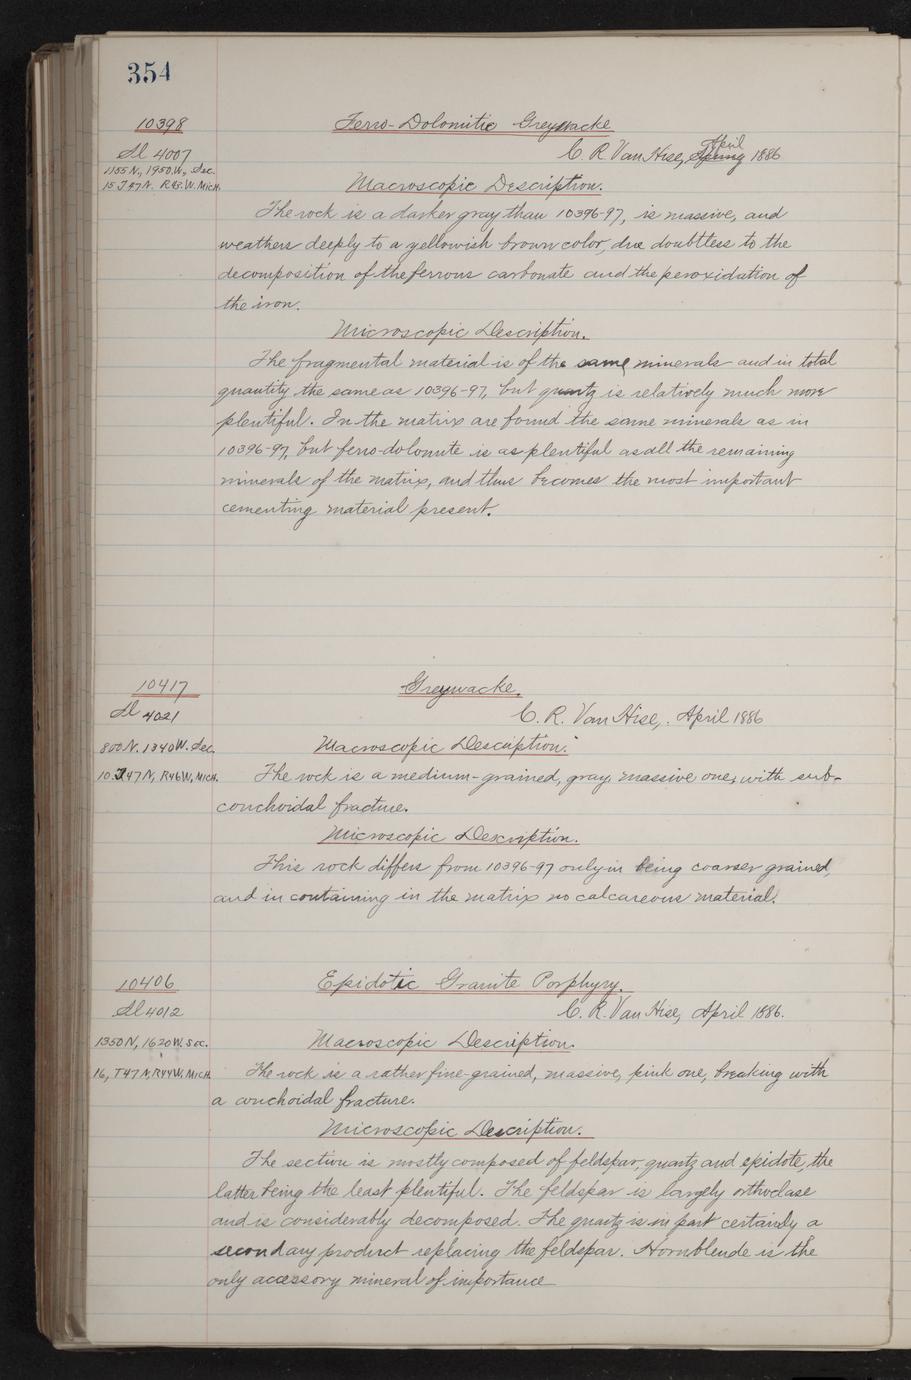 354
10398
Ferro-Dolomitic Greywacke
Sl 4007
C. R. Van Hise, Spring April 1886
1155 N., 1950 W., Sec.
15 T47N. R45.W. Mich.
Macroscopic Description.
The rock is a darker gray than 10396-97, is massive, and
weathers deeply to a yellowish brown color, due doubtless to the
decomposition of the ferrous carbonate and the peroxidation of
the iron.
Microscopic Description.
The fragmental material is of the same minerals and in total
quantity the same as 10396-97, but quartz is relatively much more
plentiful. In the matrix are found the same minerals as in
10396-97, but ferro-dolomite is as plentiful as all the remaining
minerals of the matrix, and thus becomes the most important
cementing material present.
10417
Greywacke.
Sl 4021
C. R. Van Hise, April 1886
800 N. 1340 W. Sec.
10. T47N, R46W, Mich.
Macroscopic Description.
The rock is a medium-grained, gray, massive one, with sub-
conchoidal fracture.
Microscopic Description.
This rock differs from 10396-97 only in being coarser grained,
and in containing in the matrix no calcareous material.
10406
Epidotic Granite Porphyry.
Sl 4012
C. R. Van Hise, April 1886.
1350 N, 1620 W. Sec.
16, T47N, R44W, Mich.
Macroscopic Description.
The rock is a rather fine-grained, massive, pink one, breaking with
a conchoidal fracture.
Microscopic Description.
The section is mostly composed of feldspar, quartz and epidote, the
latter being the least plentiful. The feldspar is largely orthoclase
and is considerably decomposed. The quartz is in part certainly a
secondary product replacing the feldspar. Hornblende is the
only accessory mineral of importance